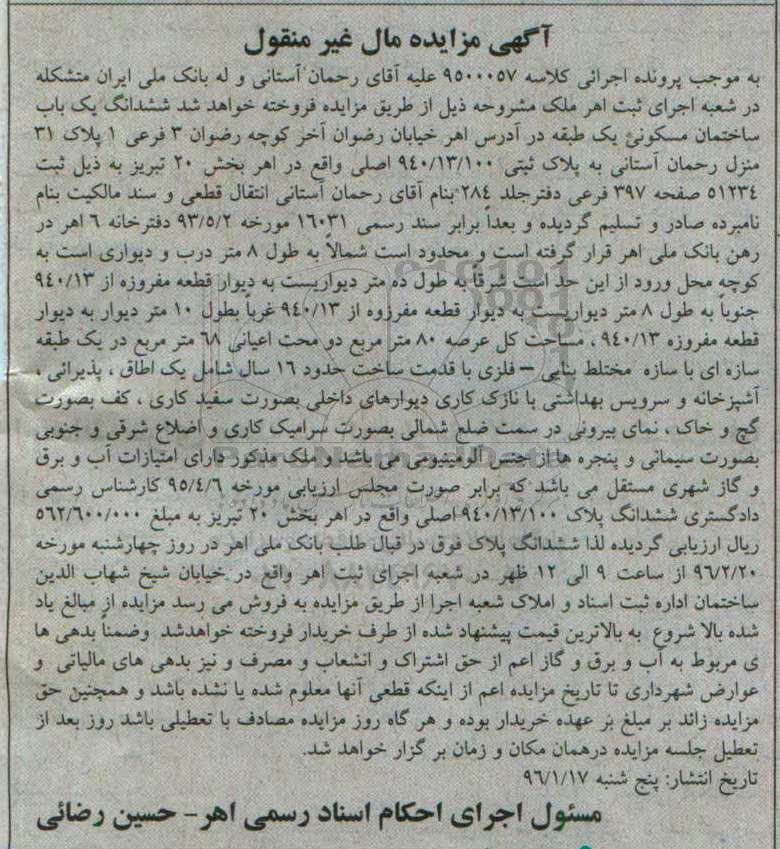 آگهی مزایده مال غیر منقول
به موجب پرونده اجرائی کلاسه ۹۵۰۰۰۵۷ علیه آقای رحمان آستانی و له بانک ملی ایران متشکله
در شعبه اجرای ثبت اهر ملک مشروحه ذیل از طریق مزایده فروخته خواهد شد ششدانگ یک باب
ساختمان مسکونی یک طبقه در آدرس اهر خیابان رضوان آخر کوچه رضوان ۳ فرعی ۱ پلاک ۳۱
منزل رحمان آستانی به پلاک ثبتی ۹٤۰/۱۳/۱۰۰ اصلی واقع در اهر بخش ۲۰ تبریز به ذیل ثبت
۵۱۲۳٤ صفحه ۳۹۷ فرعی دفترجلد ۲۸٤ بنام آقای رحمان آستانی انتقال قطعی و سند مالکیت بنام
نامبرده صادر و تسلیم گردیده و بعداً برابر سند رسمی ۱۶۰۳۱ مورخه ۹۳/۵/۲ دفترخانه ۶ اهر در
رهن بانک ملی اهر قرار گرفته است و محدود است شمالاً به طول ۸ متر درب و دیواری است به
کوچه محل ورود از این حد است شرقاً به طول ده متر دیواریست به دیوار قطعه مفروزه از ۹٤۰/۱۳
جنوباً به طول ۸ متر دیواریست به دیوار قطعه مفرزوه از ۹٤۰/۱۳ غرباً بطول ۱۰ متر دیوار به دیوار
قطعه مفروزه ۹٤۰/۱۳ ، مساحت کل عرصه ۸۰ متر مربع دو محت اعیانی ۶۸ متر مربع در یک طبقه
سازه ای با سازه مختلط بنایی – فلزی با قدمت ساخت حدود ۱۶ سال شامل یک اطاق ، پذیرائی ،
آشپزخانه و سرویس بهداشتی با نازک کاری دیوارهای داخلی بصورت سفید کاری ، کف بصورت
گچ و خاک ، نمای بیرونی در سمت ضلع شمالی بصورت سرامیک کاری و اضلاع شرقی و جنوبی
بصورت سیمانی و پنجره ها از جنس آلومینیومی می باشد و ملک مذکور دارای امتیازات آب و برق
و گاز شهری مستقل می باشد که برابر صورت مجلس ارزیابی مورخه ۹۵/٤/۶ کارشناس رسمی
دادگستری ششدانگ پلاک ۹٤۰/۱۳/۱۰۰ اصلی واقع در اهر بخش ۲۰ تبریز به مبلغ ۵۶۲/۶۰۰/۰۰۰
ریال ارزیابی گردیده لذا ششدانگ پلاک فوق در قبال طلب بانک ملی اهر در روز چهارشنبه مورخه
۹۶/۲/۲۰ از ساعت ۹ الی ۱۲ ظهر در شعبه اجرای ثبت اهر واقع در خیابان شیخ شهاب الدین
ساختمان اداره ثبت اسناد و املاک شعبه اجرا از طریق مزایده به فروش می رسد مزایده از مبالغ یاد
شده بالا شروع به بالاترین قیمت پیشنهاد شده از طرف خریدار فروخته خواهدشد وضمناً بدهی ها
ی مربوط به آب و برق و گاز اعم از حق اشتراک و انشعاب و مصرف و نیز بدهی های مالیاتی و
عوارض شهرداری تا تاریخ مزایده اعم از اینکه قطعی آنها معلوم شده یا نشده باشد و همچنین حق
مزایده زائد بر مبلغ بر عهده خریدار بوده و هر گاه روز مزایده مصادف با تعطیلی باشد روز بعد از
تعطیل جلسه مزایده درهمان مکان و زمان بر گزار خواهد شد.
تاریخ انتشار: پنج شنبه ۹۶/۱/۱۷
مسئول اجرای احکام اسناد رسمی اهر- حسین رضائی